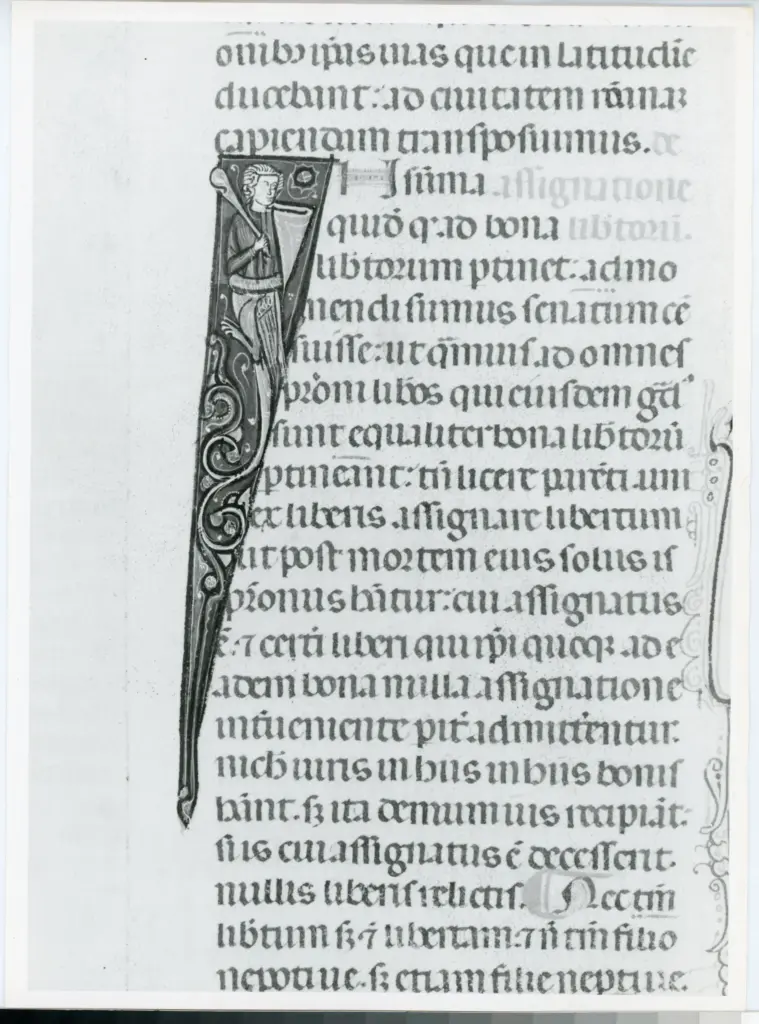 onibꝫ ipius uias que in latitudinē
ducebant: ad ciuitatem rōmaꝫ
capiendam transposuimus. de
IN sūma assignatione
quid̄ q̄ ad bona libtorū.
libtorum ptinet: admo
nendi sumus senatum cē
suisse: ut q̄muis ad omnes
pr̄oni lib̄os qui eiusdem gd̄'
sunt equaliter bona libtorū
ptineant: tn̄ licere parēti um
ex liberis assignare libertum
ut post mortem eius solus is
pr̄onus h̄atur: cui assignatus
ē. ⁊ ceteri liberi qui ip̄i quoqꝫ ad e
adem bona nulla assignatione
int̄ueniente pit̄ admitterentur.
nich iuris in hiis in hiis bonis
h̄ant. sꝫ ita demum ius recipiāt:
si is cui assignatus ē decesserit.
nullis liberis relictis. Nec tm̄
lib̄tum sꝫ ⁊ libertam: ⁊ n̄ tm̄ filio
nepotiue. sꝫ etiam filie neptiue.